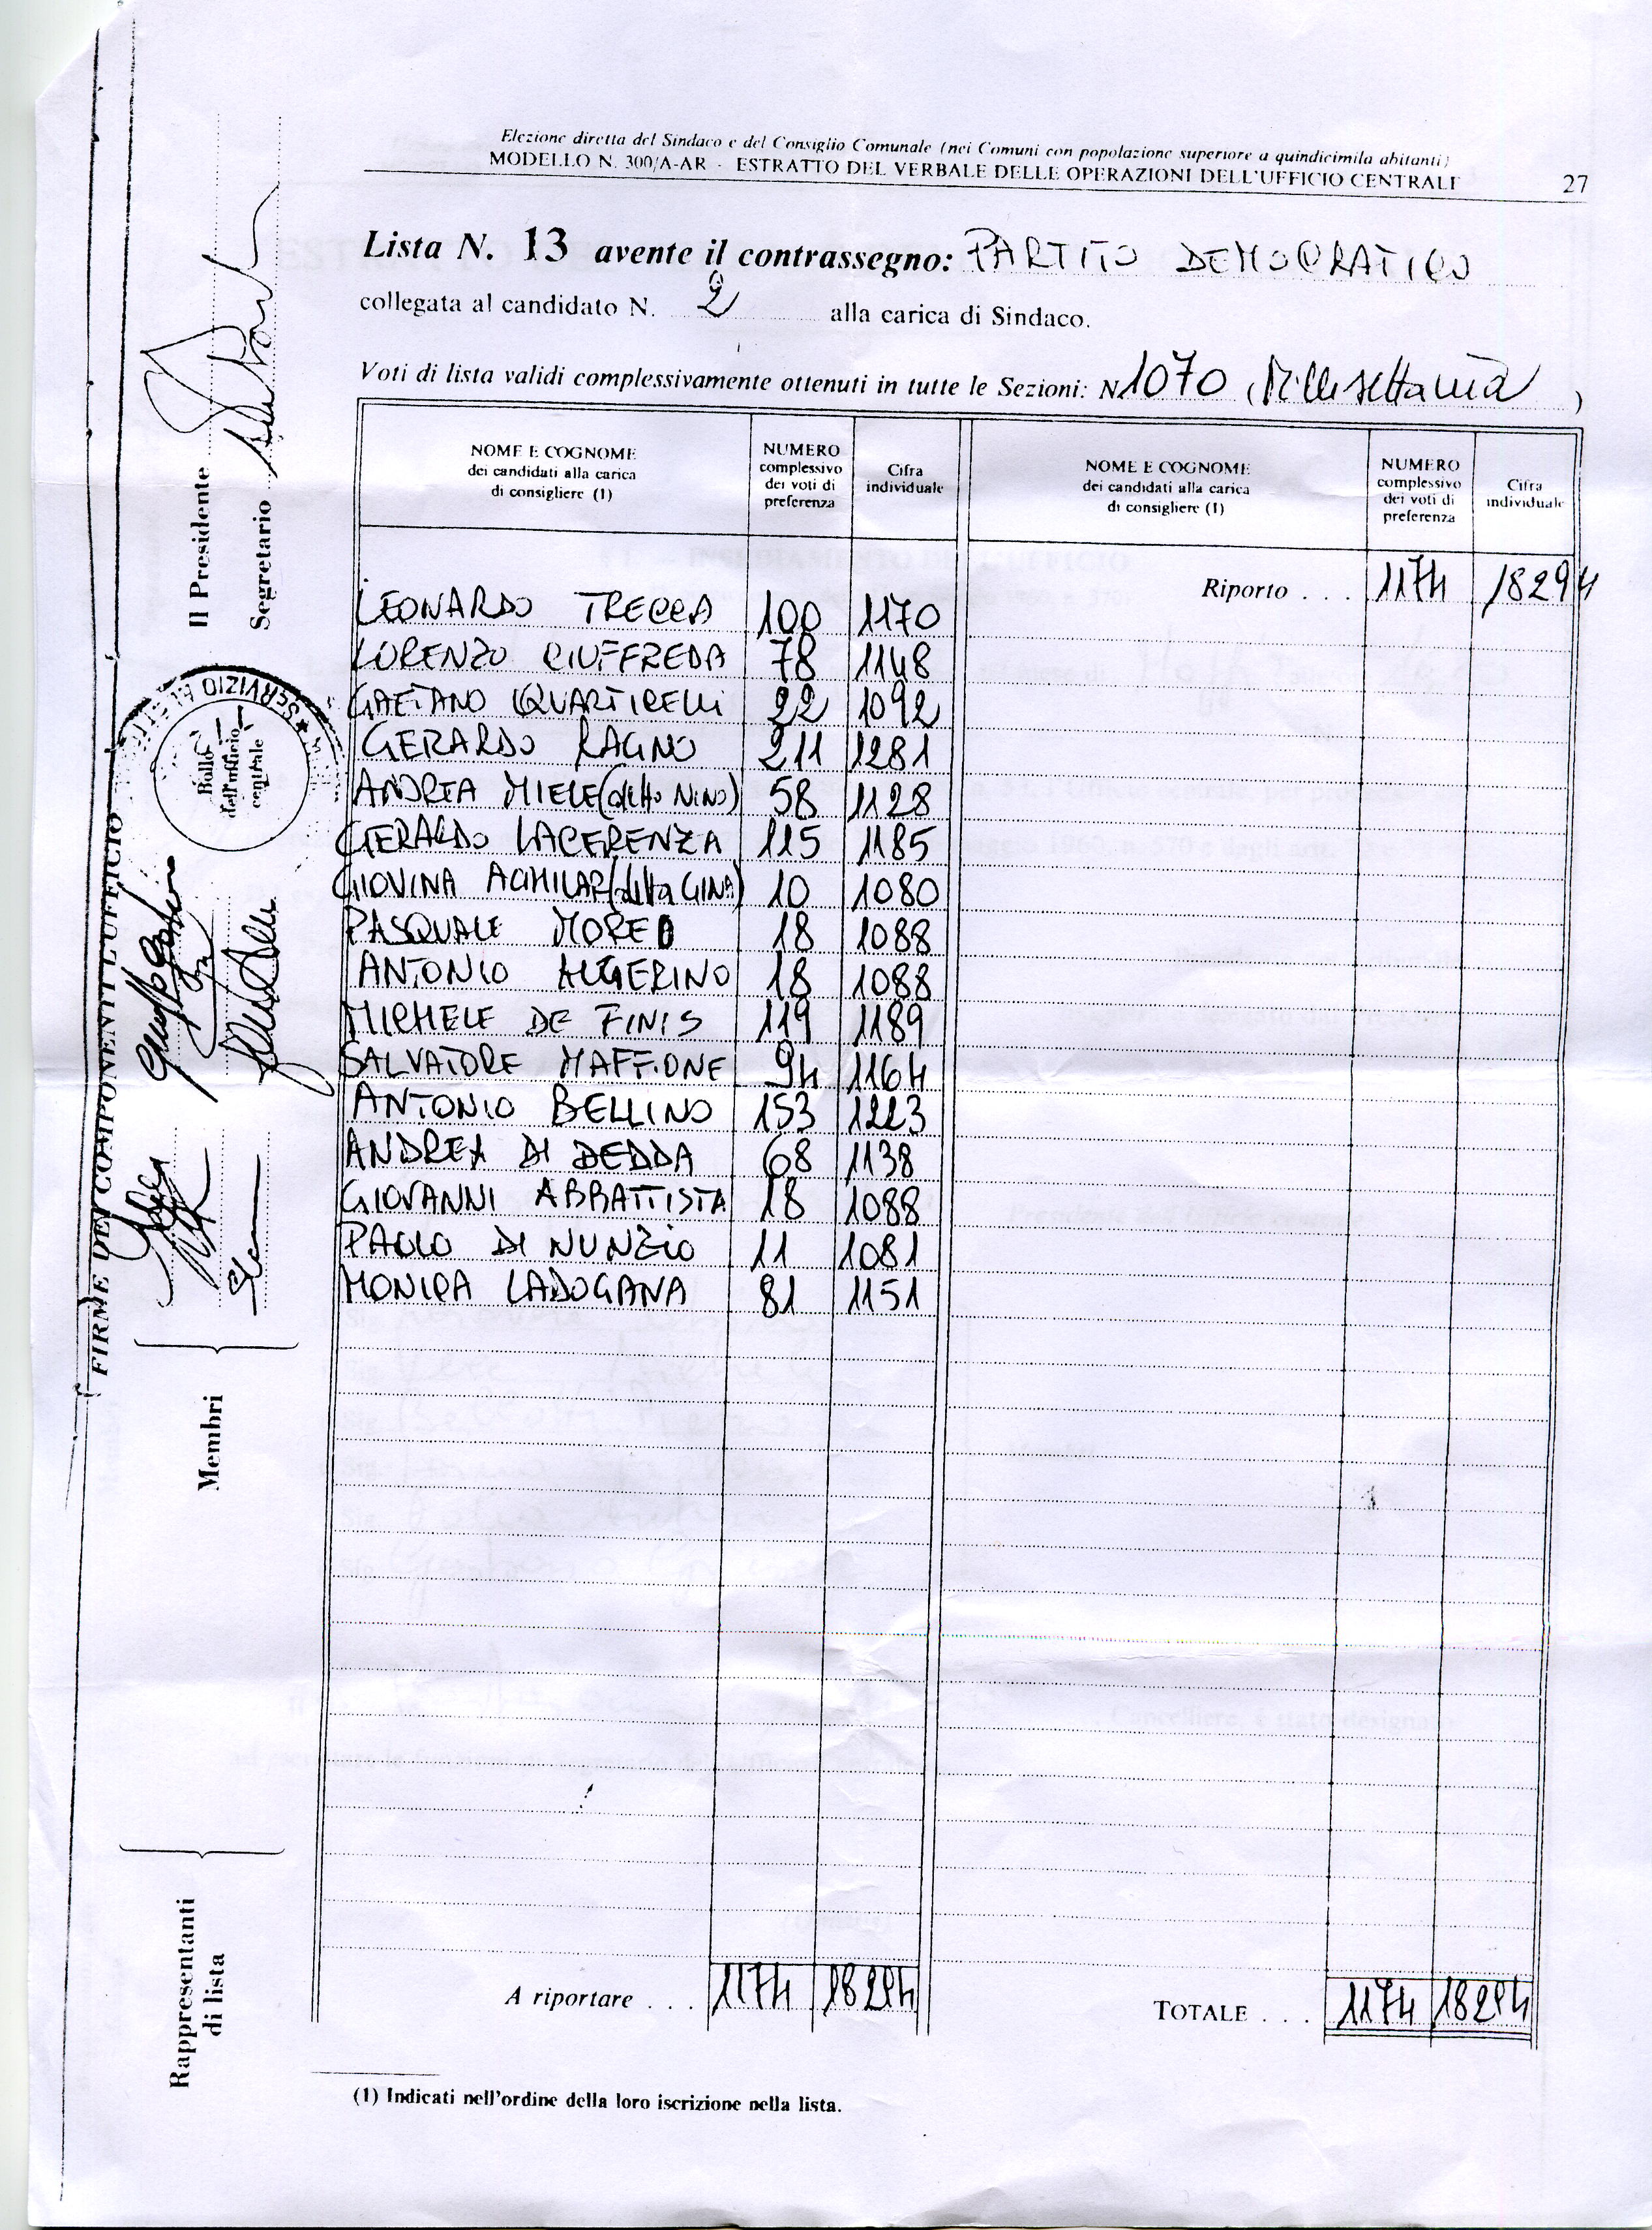 Elezione diretta del Sindaco e del Consiglio Comunale (nei Comuni con popolazione superiore a quindicimila abitanti)
MODELLO N. 300/A-AR - ESTRATTO DEL VERBALE DELLE OPERAZIONI DELL'UFFICIO CENTRALE 27
Lista N. 13 avente il contrassegno: PARTITO DEMOCRATICO
collegata al candidato N. 2 alla carica di Sindaco.
Voti di lista validi complessivamente ottenuti in tutte le Sezioni: N. 1070 (Millesettanta)
NOME E COGNOME dei candidati alla carica di consigliere (1) NUMERO complessivo dei voti di preferenza Cifra individuale
NOME E COGNOME dei candidati alla carica di consigliere (1) NUMERO complessivo dei voti di preferenza Cifra individuale
Riporto . . . 1174 18294
LEONARDO TRECCA 100 1170
LORENZO CIUFFREDA 78 1148
GAETANO QUARTICELLI 22 1092
GERARDO RAGNO 211 1281
ANDREA MIELE (detto NINO) 58 1128
GERARDO LACERENZA 115 1185
GIOVINA ACHILAR (detta GINA) 10 1080
PASQUALE MOREO 18 1088
ANTONIO ALGERINO 18 1088
MICHELE DE FINIS 119 1189
SALVATORE MAFFIONE 94 1164
ANTONIO BELLINO 153 1223
ANDREA DI DEDDA 68 1138
GIOVANNI ABBATTISTA 18 1088
PAOLO DI NUNZIO 11 1081
MONICA LADOGANA 81 1151
A riportare . . . 1174 18294
TOTALE . . . 1174 18294
(1) Indicati nell'ordine della loro iscrizione nella lista.
FIRME DEI COMPONENTI L'UFFICIO
Il Presidente
Segretario
Bollo dell'ufficio centrale
Membri
Rappresentanti di lista